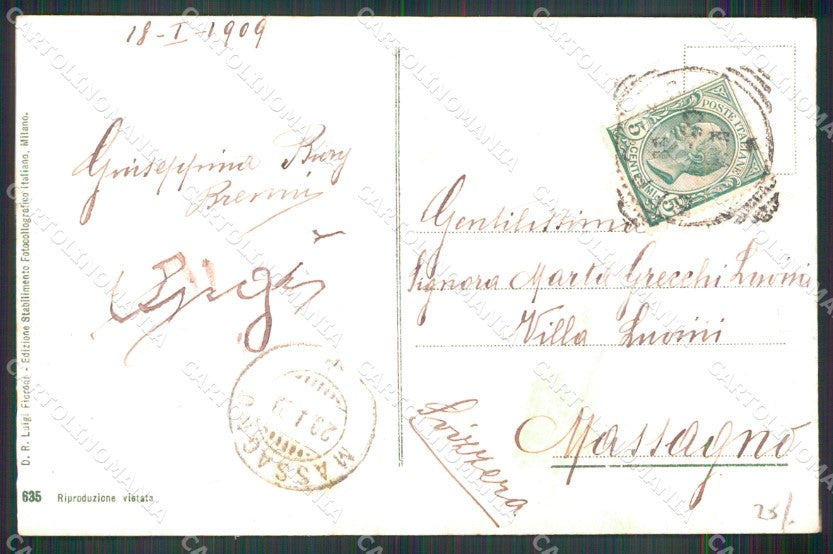 18-I-1909
Giuseppina
Luigi
D. R. Luigi Fioroni - Edizione Stabilimento Fotocollografico italiano, Milano.
635 Riproduzione vietata
POSTE ITALIANE
5 CENTESIMI 5
Gentilissima
Signora Marta Grecchi Luvini
Villa Luvini
Massagno
Svizzera
MASSAGNO
25/.
CARTOLINOMANIA